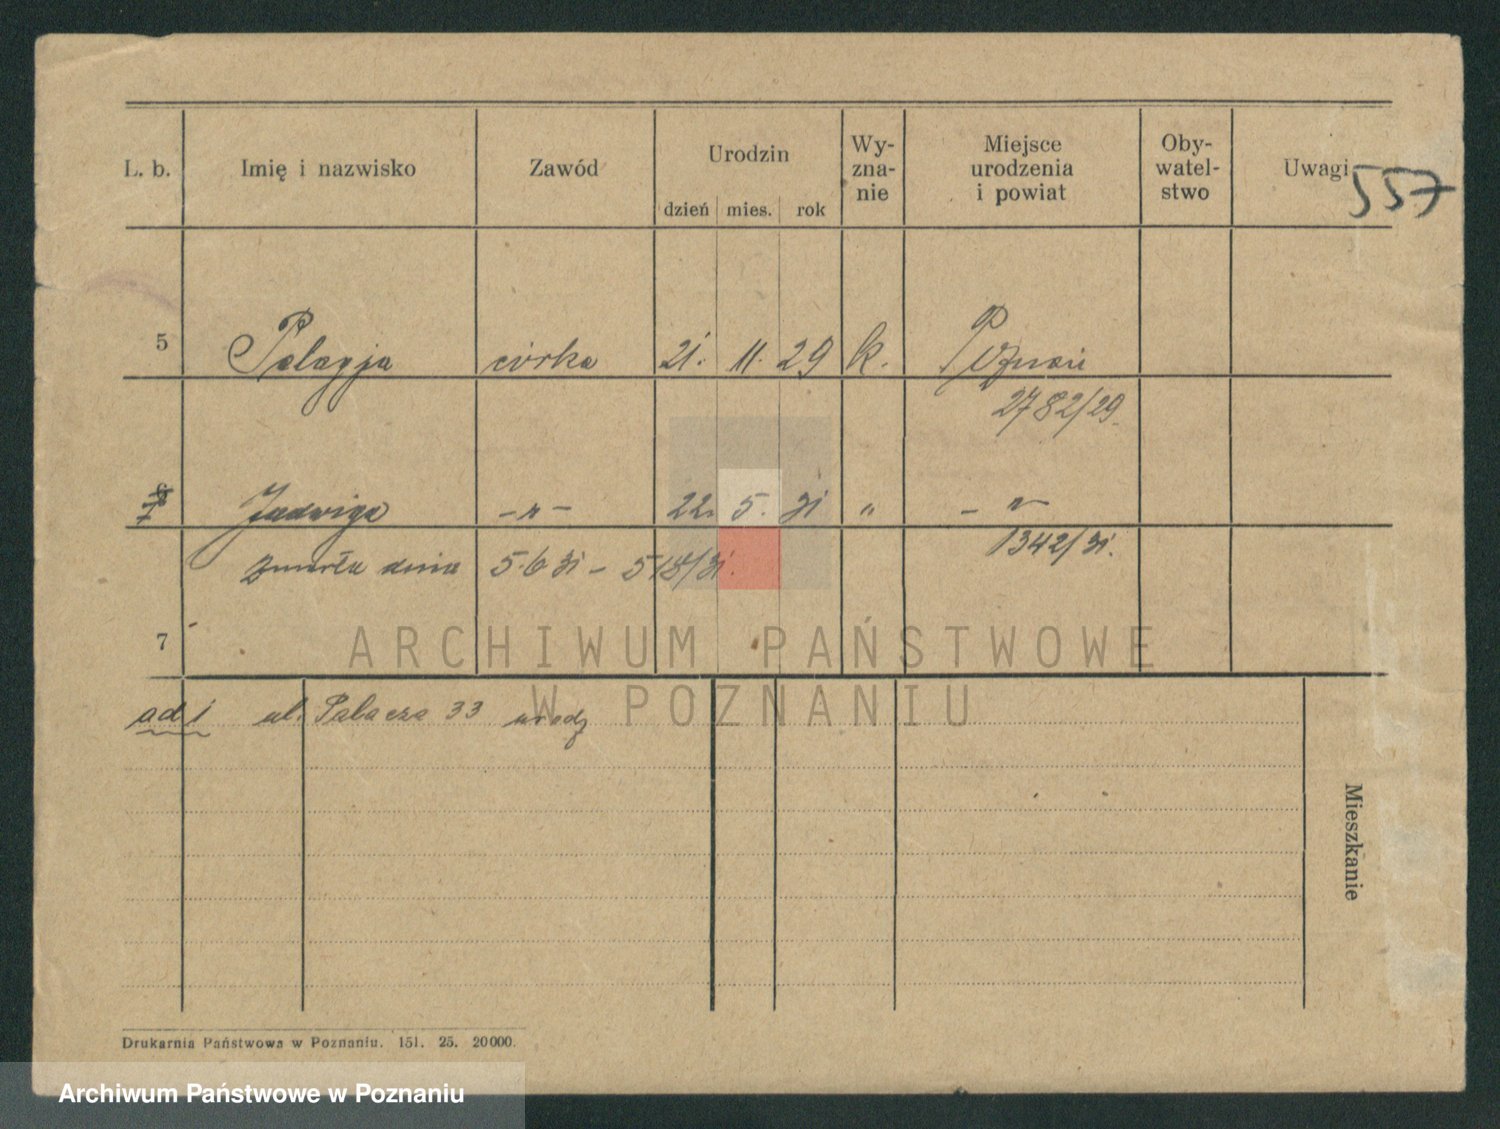 L. b. Imię i nazwisko Zawód Urodzin dzień mies. rok Wy-zna-nie Miejsce urodzenia i powiat Oby-watel-stwo Uwagi 557
5 Pelagja córka 21. 11. 29 k. Poznań
2782/29.
Jadwiga -„- 22. 5. 31 „ -„-
1342/31.
zmarła dnia 5.6 31 -
7
ad 1 ul. Palacza 33 urodz
Mieszkanie
Drukarnia Państwowa w Poznaniu. 151. 25. 20000.
ARCHIWUM PAŃSTWOWE
W POZNANIU
Archiwum Państwowe w Poznaniu